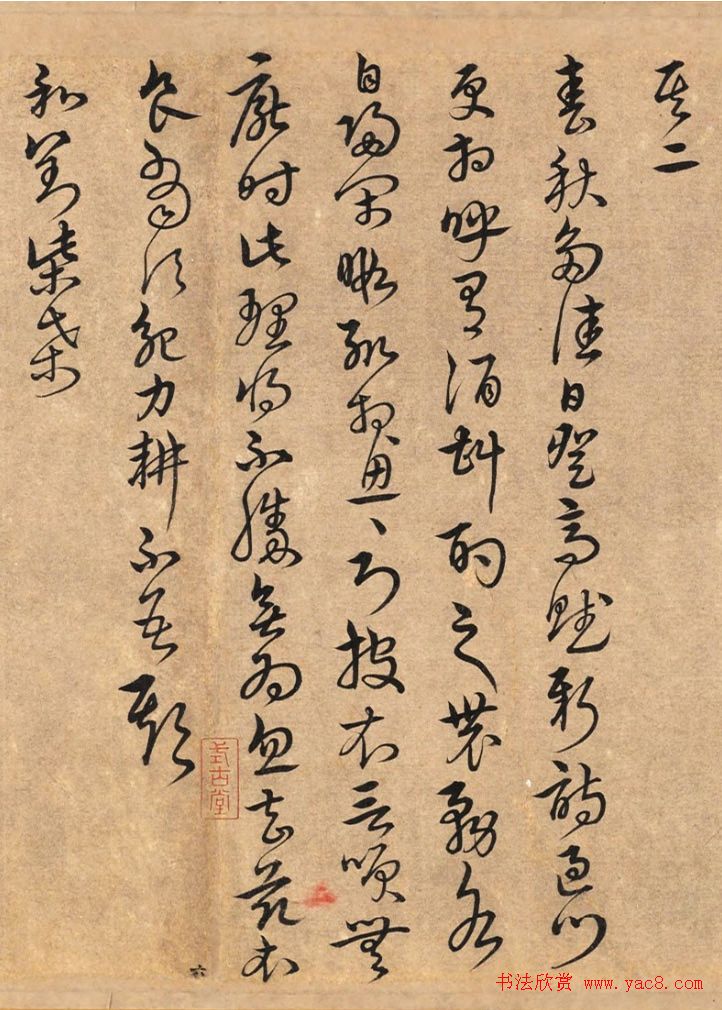 其二
春秋多佳日登高賦新詩過門
更相呼有酒斟酌之農務各
自歸閑暇輒相思〻則披衣言笑無
厭時此理將不勝無為忽去茲衣
食當須紀力耕不吾欺
和劉柴桑
式古堂
六
书法欣赏 www.yac8.com